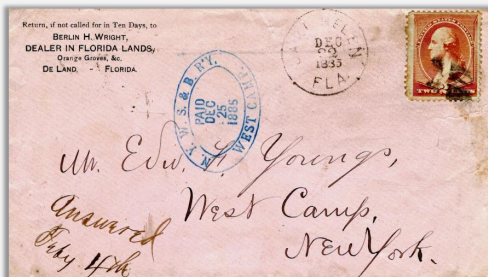 Return, if not called for in Ten Days, to
BERLIN H. WRIGHT,
DEALER IN FLORIDA LANDS,
Orange Groves, &c.
DE LAND, - FLORIDA.
LAKE HELEN
DEC
1885
FLA.
N. Y. W. S. & B. RY.
PAID
DEC
25
1885
WEST CAMP.
TWO CENTS
Mr. Edw. Youngs,
West Camp,
New York.
Answered
Feby 4th